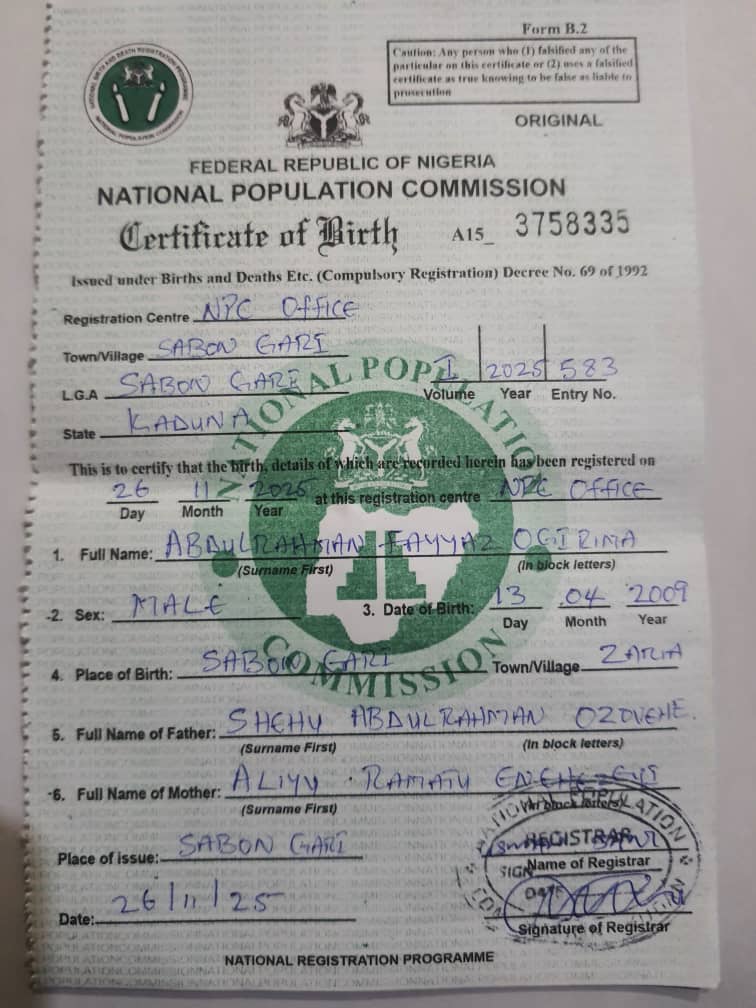 Form B.2
Caution: Any person who (1) falsified any of the
particular on this certificate or (2) uses a falsified
certificate as true knowing to be false as liable to
prosecution
NATIONAL POPULATION COMMISSION
ORIGINAL
FEDERAL REPUBLIC OF NIGERIA
NATIONAL POPULATION COMMISSION
Certificate of Birth A15_ 3758335
Issued under Births and Deaths Etc. (Compulsory Registration) Decree No. 69 of 1992
Registration Centre NPC OFFICE
Town/Village SABON GARI
L.G.A SABON GARI
I 2025 583
Volume Year Entry No.
State KADUNA
NATIONAL POPULATION COMMISSION
This is to certify that the birth, details of which are recorded herein has been registered on
26 11 2025 at this registration centre NPC OFFICE
Day Month Year
1. Full Name: ABDULRAHMAN FAYYAZ OGIRIMA
(Surname First) (In block letters)
2. Sex: MALE 3. Date of Birth: 13 04 2009
Day Month Year
4. Place of Birth: SABON GARI Town/Village ZARIA
5. Full Name of Father: SHEHU ABDULRAHMAN OZOVEHE.
(Surname First) (In block letters)
6. Full Name of Mother: ALIYU RAMATU
(Surname First) (In block letters)
Place of issue: SABON GARI
REGISTRAR
Name of Registrar
SIGN
DATE
Date: 26/11/25
Signature of Registrar
NATIONAL REGISTRATION PROGRAMME